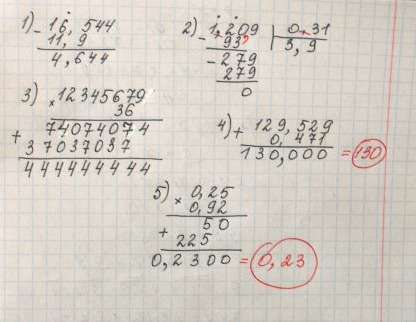 1) - 16,544
11,9
4,644
2) - 1,209 | 0,31
93 | 3,9
- 279
279
0
3) × 12345679
36
74074074
+ 37037037
444444444
4) + 129,529
0,471
130,000 = 130
5) × 0,25
0,92
50
+ 225
0,2300 = 0,23